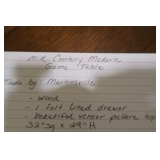 Mid Century Modern
Game Table
Made by: Martinsville
- wood
- 1 felt lined drawer
- beautiful veneer pattern top
32"sq x 29"H